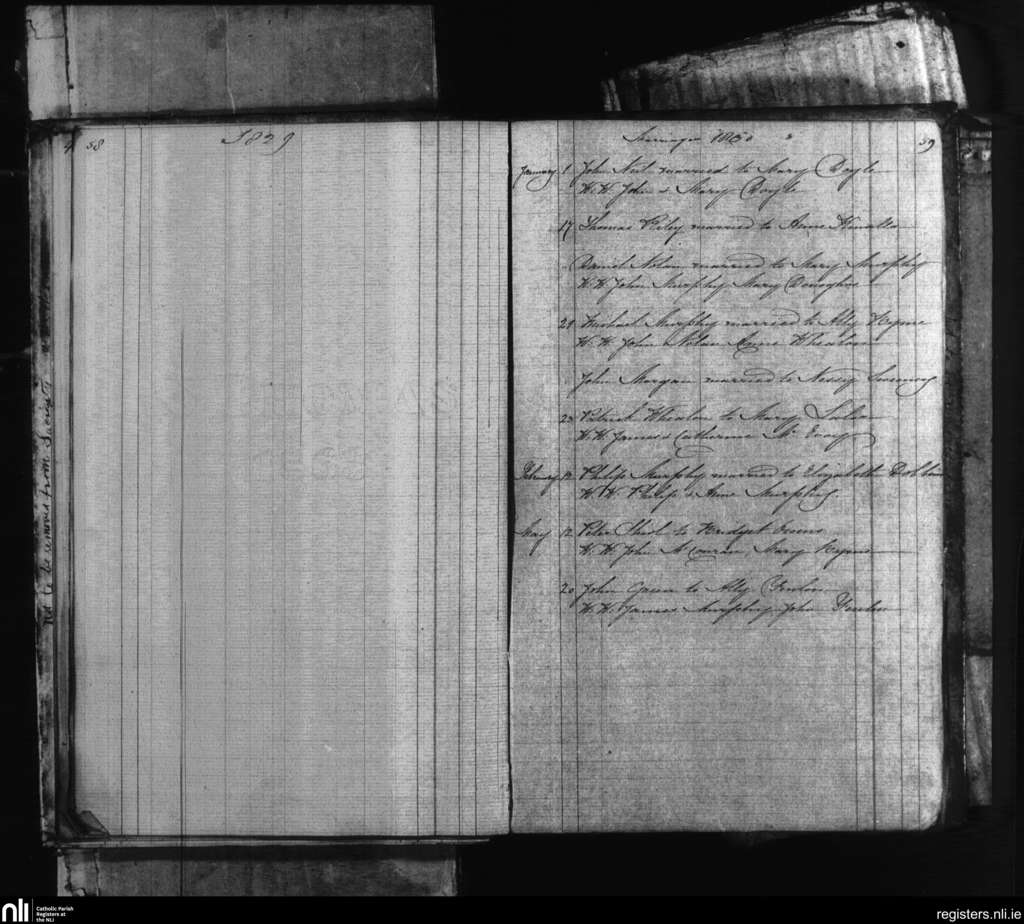 58
1829
Marriages 1830
39
January 1 John Neil married to Mary Doyle
W.W. John & Mary Doyle
17 Thomas Riley married to Anne
Daniel Nolan married to Mary Murphy
W.W. John Murphy Mary Donoghoe
21 Michael Murphy married to Ally Byrne
W.W. John Nolan Anne Whealan
John Morgan married to Nessy
23 Patrick Whealan to Mary
W.W. James & Catherine Mc Evoy
February 12 Philip Murphy married to Elizabeth
W.W. Philip & Anne Murphy
May 12 Peter to Bridget
W.W. John Mary Byrne
20 John Green to Ally
W.W. James Murphy John
Not to be removed from Sacristy
nli
Catholic Parish
Registers at
the NLI
registers.nli.ie